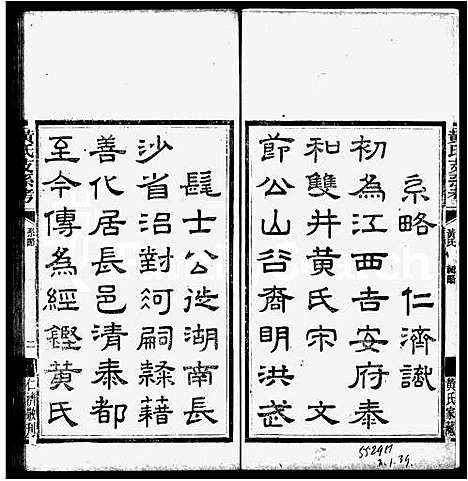 系略 仁濟識
初為江西吉安府泰
和雙井黃氏宋 文
節公山谷裔明洪武
髦士公徙湖南長
沙省沿對河嗣隸藉
善化居長邑清泰都
至今傳為經鏗黃氏
黃氏支系考
黃氏
黃氏家藏
黃氏支系考
系略
二
仁濟敬刊
552917